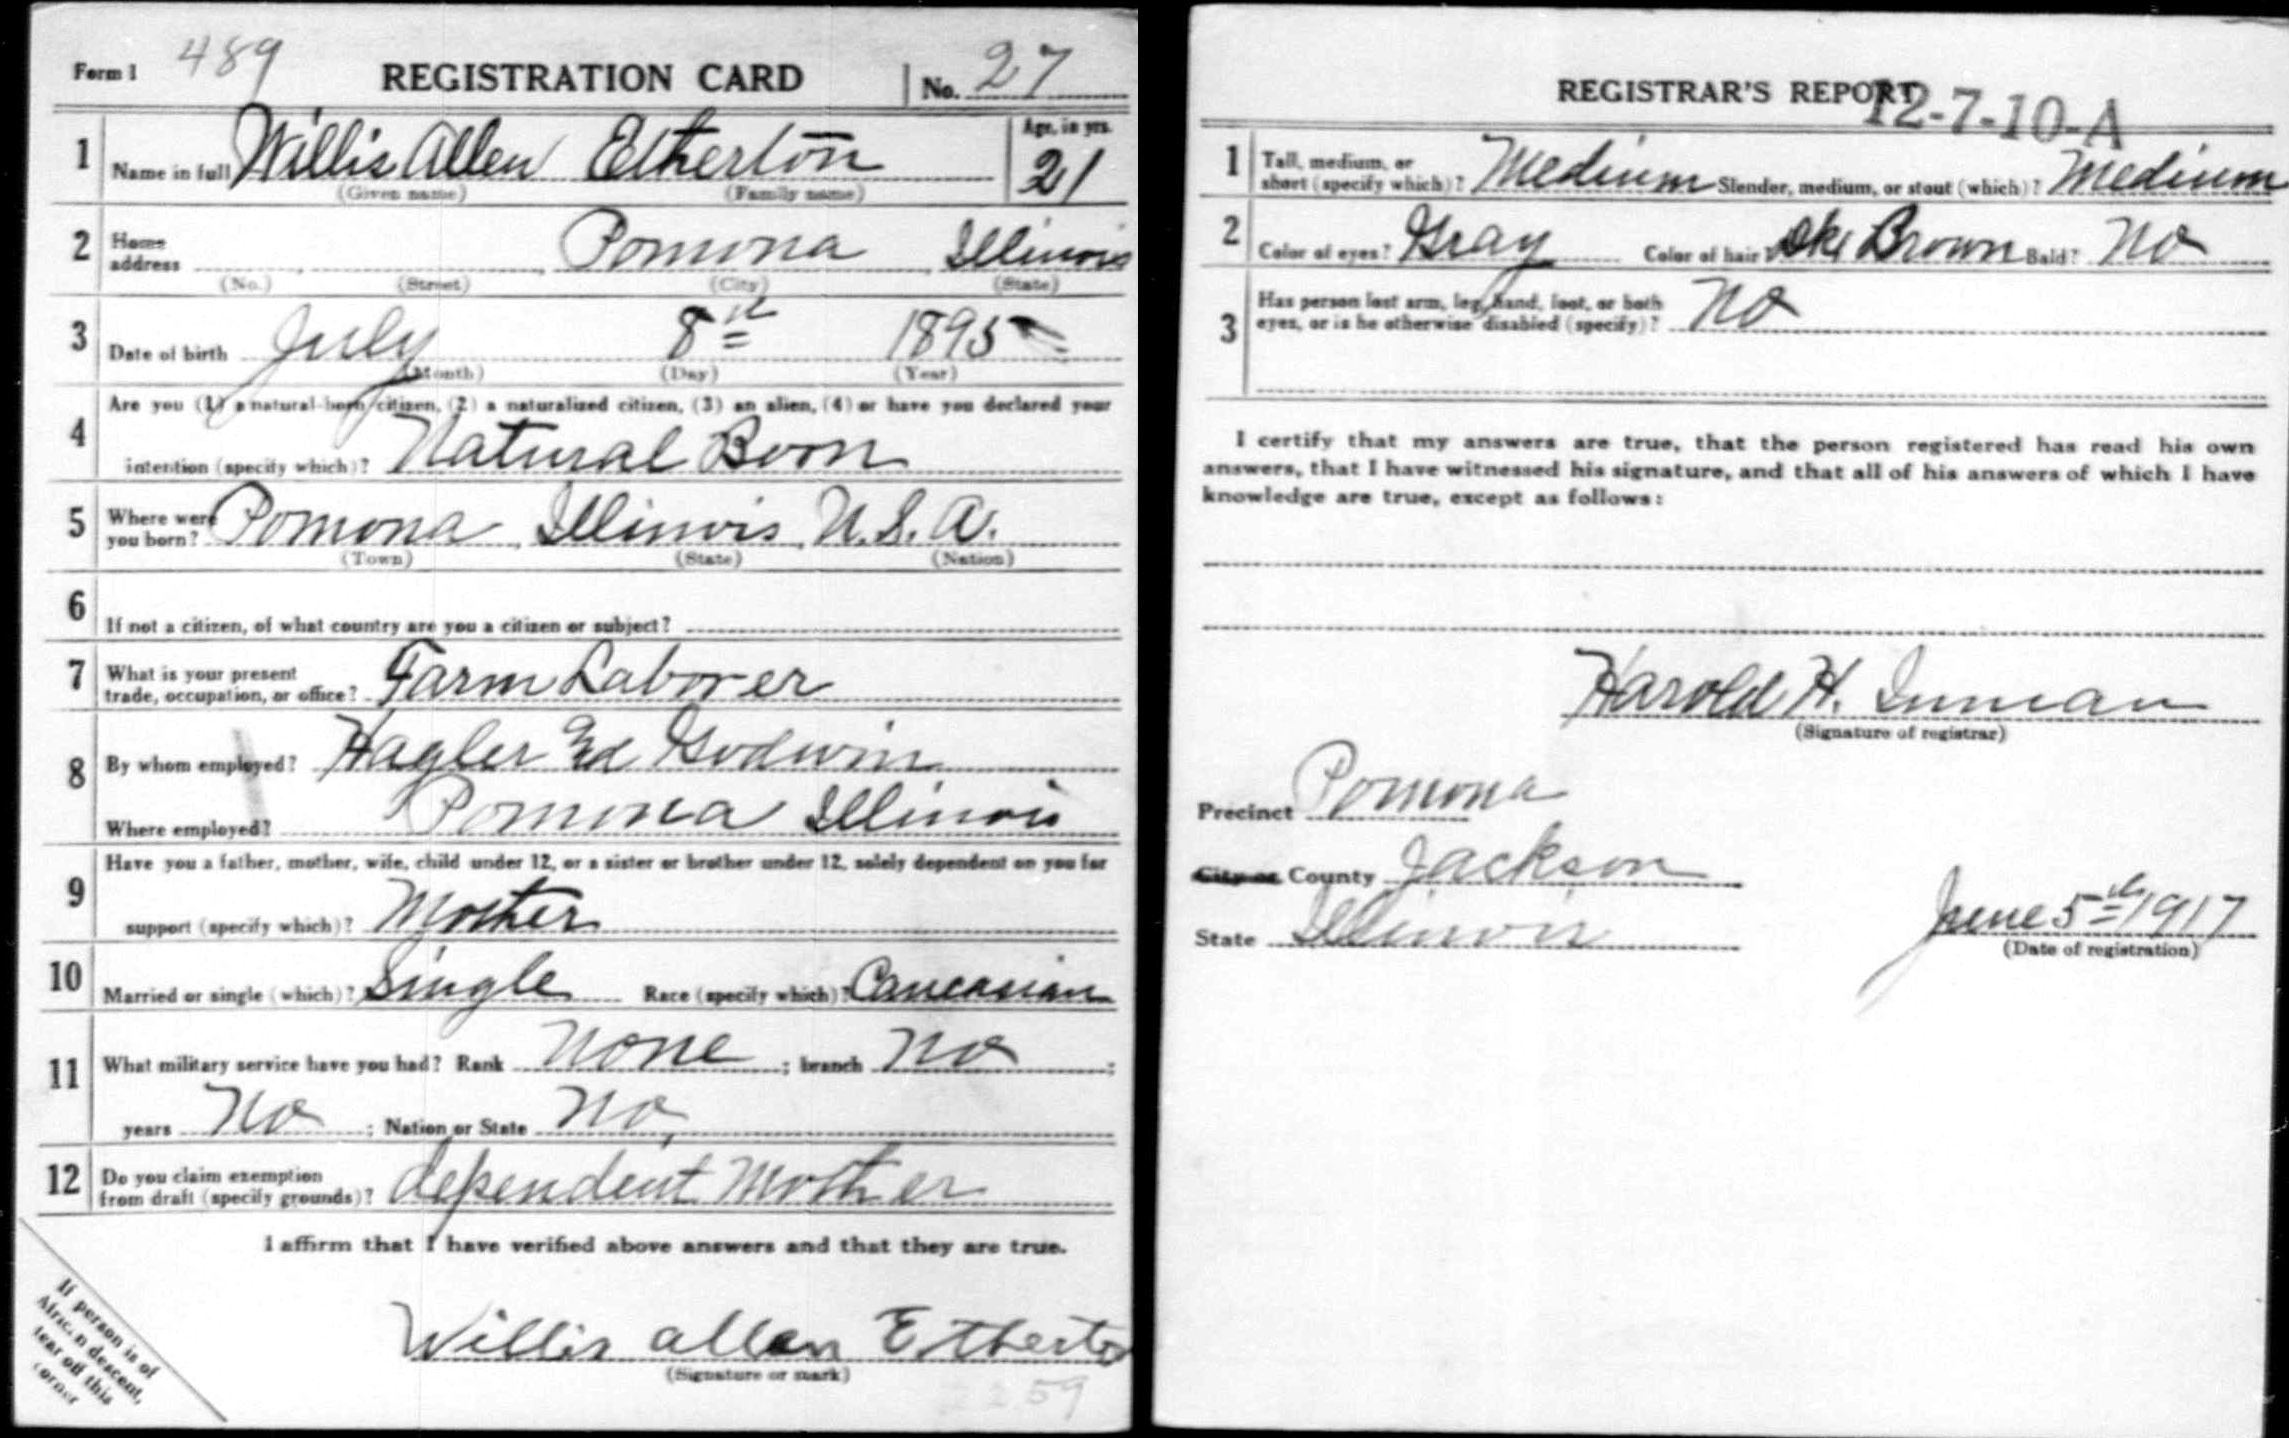 Form 1 489 REGISTRATION CARD No. 27
1 Name in full Willis Allen Etherton Age, in yrs. 21
(Given name) (Family name)
2 Home address Pomona Illinois
(No.) (Street) (City) (State)
3 Date of birth July 8th 1895
(Month) (Day) (Year)
4 Are you (1) a natural-born citizen, (2) a naturalized citizen, (3) an alien, (4) or have you declared your
intention (specify which)? Natural Born
5 Where were you born? Pomona, Illinois, U.S.A.
(Town) (State) (Nation)
6 If not a citizen, of what country are you a citizen or subject?
7 What is your present trade, occupation, or office? Farm Laborer
8 By whom employed? Hagler Ed Godwin
Where employed? Pomona Illinois
9 Have you a father, mother, wife, child under 12, or a sister or brother under 12, solely dependent on you for
support (specify which)? Mother
10 Married or single (which)? Single Race (specify which)? Caucasian
11 What military service have you had? Rank None ; branch No ;
years No ; Nation or State No
12 Do you claim exemption from draft (specify grounds)? dependent Mother
I affirm that I have verified above answers and that they are true.
Willis allen Etherton
(Signature or mark)
59
If person is of
African descent,
tear off this
corner
REGISTRAR'S REPORT
12-7-10-A
1 Tall, medium, or short (specify which)? Medium Slender, medium, or stout (which)? Medium
2 Color of eyes? Gray Color of hair? Dk Brown Bald? No
3 Has person lost arm, leg, hand, foot, or both
eyes, or is he otherwise disabled (specify)? No
I certify that my answers are true, that the person registered has read his own
answers, that I have witnessed his signature, and that all of his answers of which I have
knowledge are true, except as follows:
Harold H. Inman
(Signature of registrar)
Precinct Pomona
City or County Jackson
State Illinois
June 5th 1917
(Date of registration)